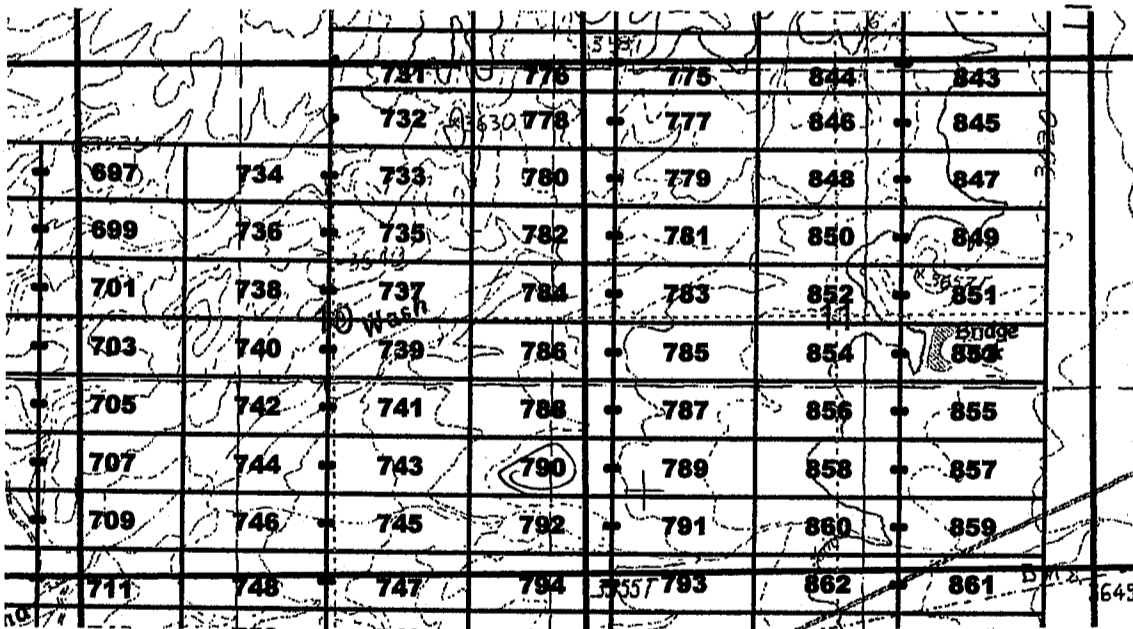 3581
731 776 775 844 843
732 3630 778 777 846 845
697 734 733 780 779 848 847
699 736 735 782 781 850 849
701 738 737 784 783 852 851
Wash
11
Bridge
703 740 739 786 785 854 853
705 742 741 788 787 856 855
707 744 743 790 789 858 857
709 746 745 792 791 860 859
711 748 747 794 3555T 793 862 861
3645